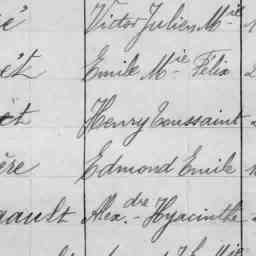 Victor Julien M^ie
Emile M^ie Félix
Henry Toussaint
ère Edmond Emile
ault Alex.^dre Hyacinthe